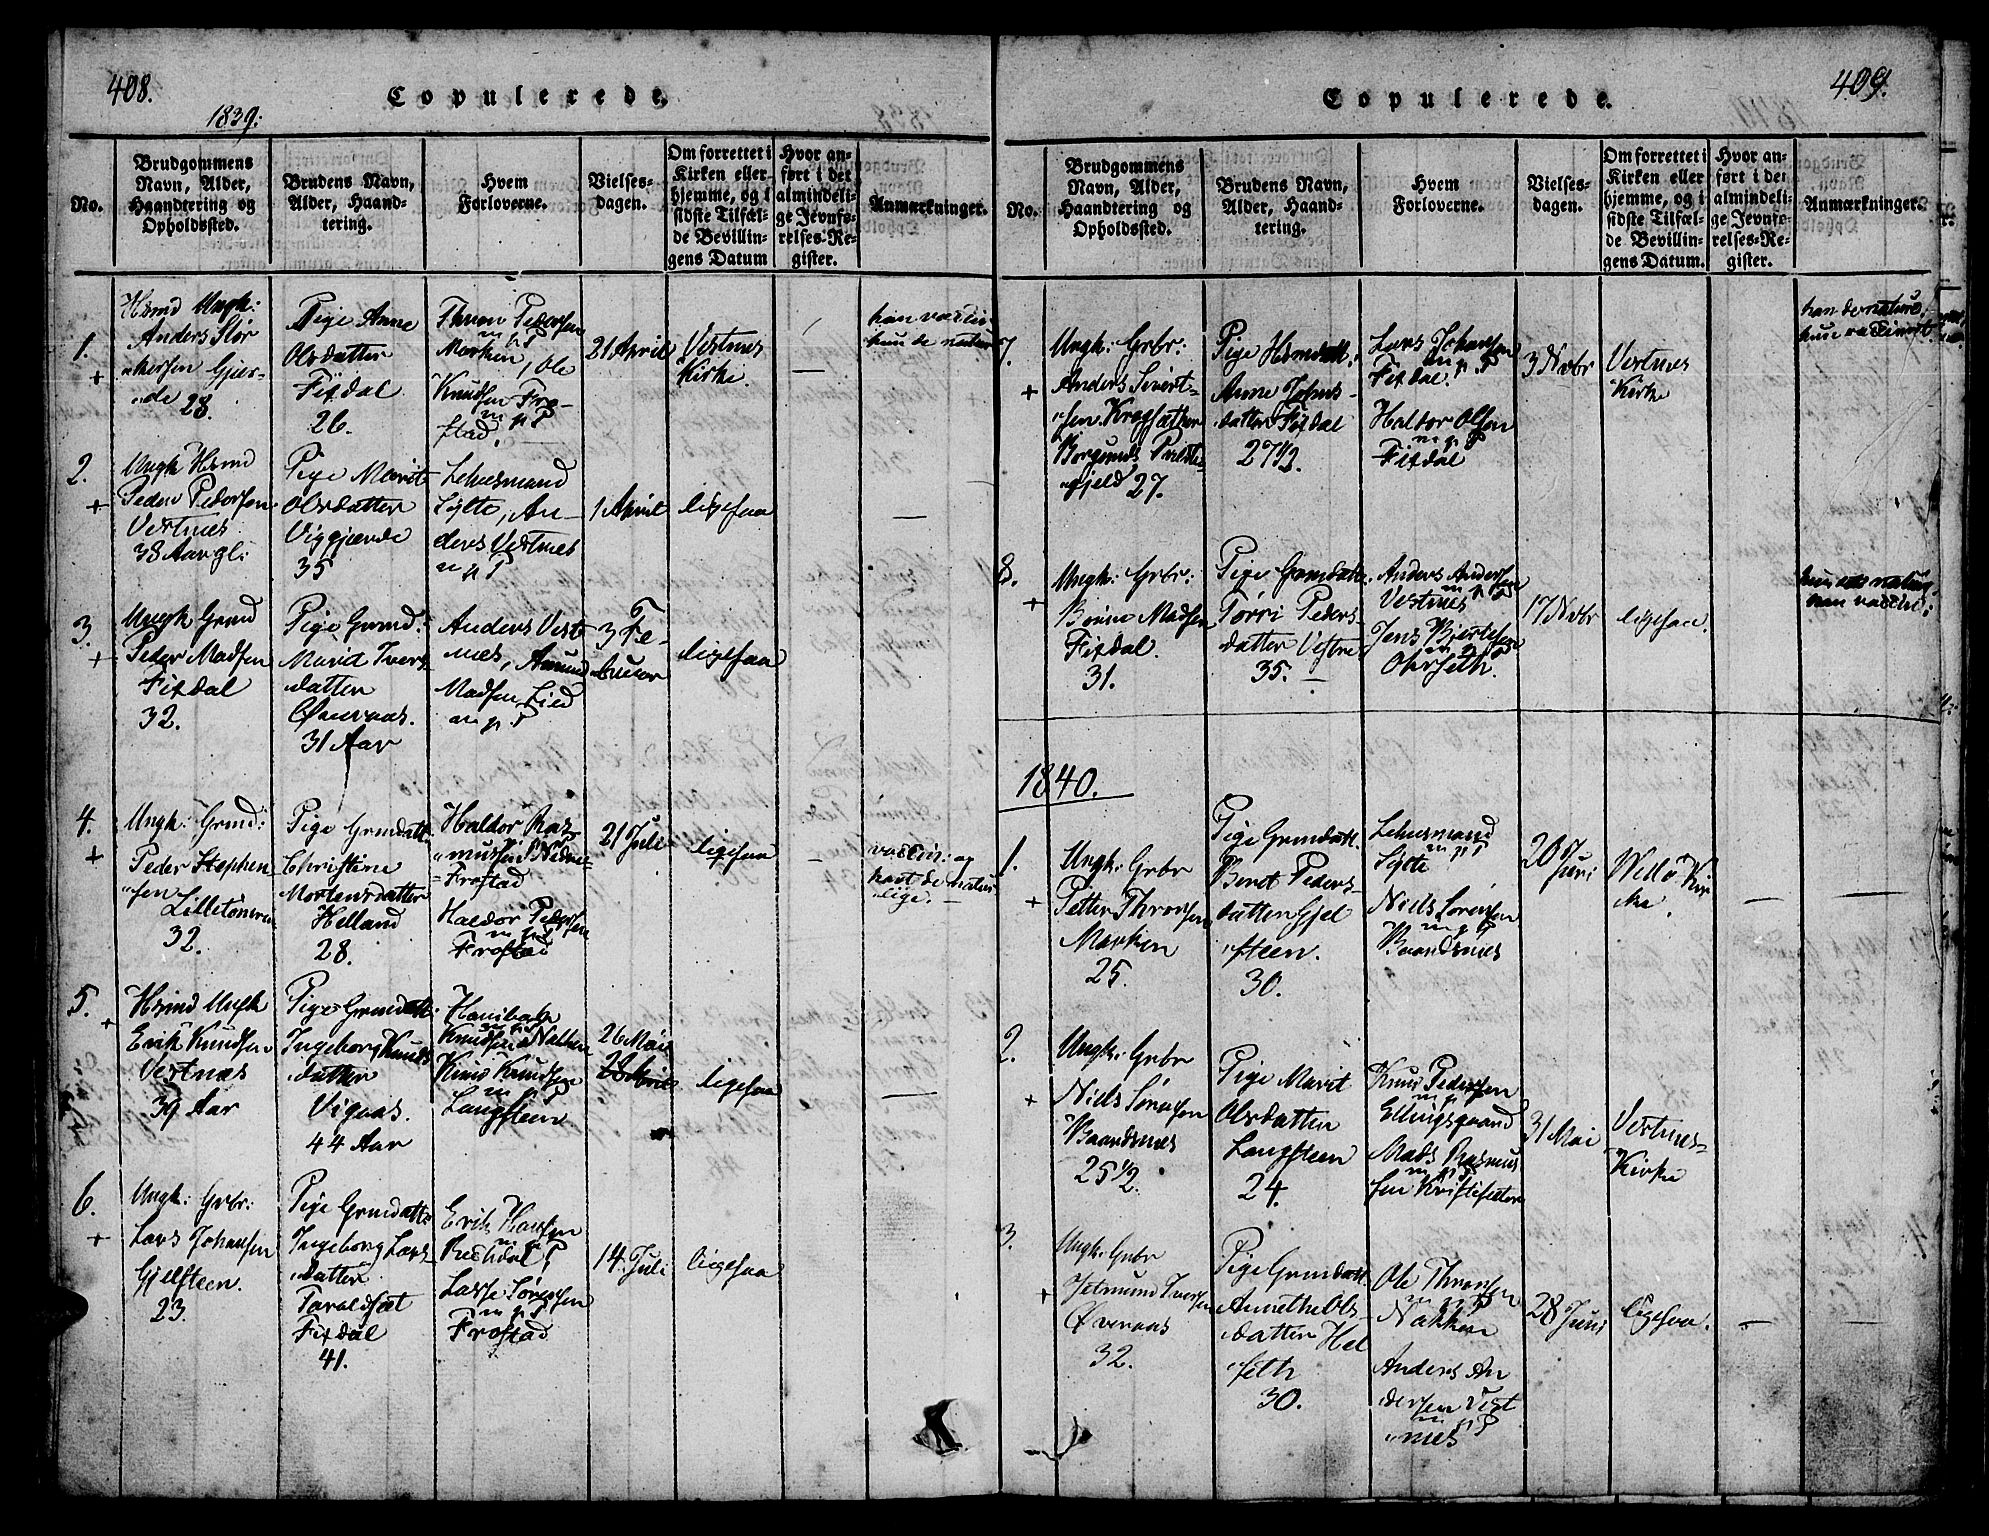 408.
Copulerede.
1839:
No.
Brudgommens
Navn, Alder,
Haandtering og
Opholdssted.
Brudens Navn,
Alder, Haand-
tering.
Hvem
Forloverne.
Vielses-
dagen.
Om forrettet i
Kirken eller
hjemme, og i
sidste Tilfæl-
de Bevillin-
gens Datum
Hvor an-
ført i det
almindeli-
ge Jevnfø-
relses-Re-
gister.
Anmærkninger.
1.
+
Ungk:
Anders
Gjer-
de 28.
Pige Anne
Olsdatter
Fixdal
26.
Thron Pedersen
Marken, Ole
Knudsen Fro-
stad.
21 April
Vestnes
Kirke.
2.
+
Ungk
Peder Pedersen
Vestnes
38 Aar gl:
Pige Marit
Olsdatter
Viggjerde
35
Lehnsmand
Sylte, An-
ders Vestnes
1 April
ligesaa
3.
+
Ungk Grmd
Peder Madsen
Fixdal
32.
Pige Grmd:
Marid Ivers
datter
Øveraas.
31 Aar
Anders Vest
nes, Amund
Madsen Lied
3 Fe-
bruar
ligesaa
4.
+
Ungk: Grmd:
Peder Stephen
sen
32.
Pige Grmdatt:
Christine
Mortensdatter
Helland
28.
Haldor Ras-
mussen Nedre
Frostad
Haldor Pedersen
Frostad
21 Juli
ligesaa
vaccin: og
havt de natur
lige.
5.
+
Ungk
Erik Knudsen
Vestnæs
39 Aar
Pige Grmdatt:
Ingeborg Knuds
datter
Vigaas.
44 Aar
Knudsen Nakken
Knud Knudsen
Langsteen
26 Mai
ligesaa
6.
+
Ungk: Grbr:
Lars Johansen
Gjelsteen.
23.
Pige Grmdatt:
Ingeborg Lars
datter
Taraldset
Fixdal
41.
Erik Hansen
Lasse Sørensen
Frostad
14. Juli
ligesaa
409.
Copulerede.
No.
Brudgommens
Navn, Alder,
Haandtering og
Opholdssted.
Brudens Navn,
Alder, Haand-
tering.
Hvem
Forloverne.
Vielses-
dagen.
Om forrettet i
Kirken eller
hjemme, og i
sidste Tilfæl-
de Bevillin-
gens Datum.
Hvor an-
ført i det
almindeli-
ge Jevnfø-
relses-Re-
gister.
Anmærkninger.
7.
+
Ungk: Grbr:
Anders Sivert-
sen
Borgunds Præste-
gjeld 27.
Pige
Anne Johns-
datter Fixdal
27½.
Lars Johansen
Fixdal.
Haldor Olsen
Fixdal
3 Nvbr
Vestnes
Kirke
han de nature,
hun vaccinert
8.
+
Ungk: Grbr:
Madsen
Fixdal.
31.
Pige Grmdatt.
Peders-
datter
35.
Anders Andersen
Vestnes
Jens
17 Nvbr
ligesaa.
han vaccin:
1840.
1.
+
Ungk: Grbr
Petter Thronsen
Marken
25.
Pige Grmdatt.
Beret Peders-
datter Gjel
steen.
30.
Lehnsmand
Sylte
Niels Sørensen
Baardsnes
20 Juni
Kir
ke
2.
+
Ungk: Grbr
Niels Sørensen
Baardsnes
25½.
Pige Marit
Olsdatter
Langsteen
24.
Knud Pedersen
Ellingsgaard
Mads Rasmus
sen
31 Mai
Vestnes-
Kirke
3.
+
Ungk: Grbr
Jetmund Iversen
Øveraas
32.
Pige Grmdatt.
Annethe Ols
datter Hel
seth
30.
Ole Thronsen
Nakken
Anders An
dersen Vest
nes
28 Juni
ligesaa.